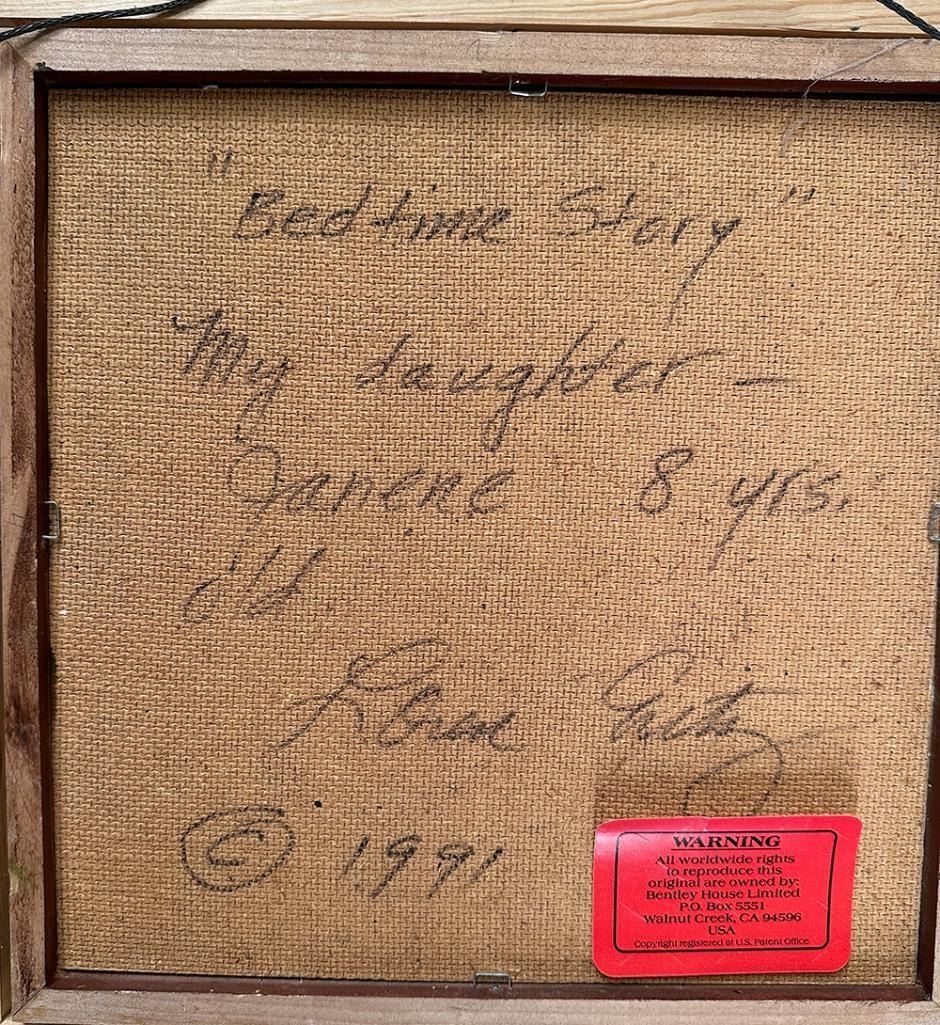 "Bedtime Story"
My daughter —
Janene 8 yrs.
old
© 1991
WARNING
All worldwide rights
to reproduce this
original are owned by:
Bentley House Limited
P.O. Box 5551
Walnut Creek, CA 94596
USA
Copyright registered at U.S. Patent Office